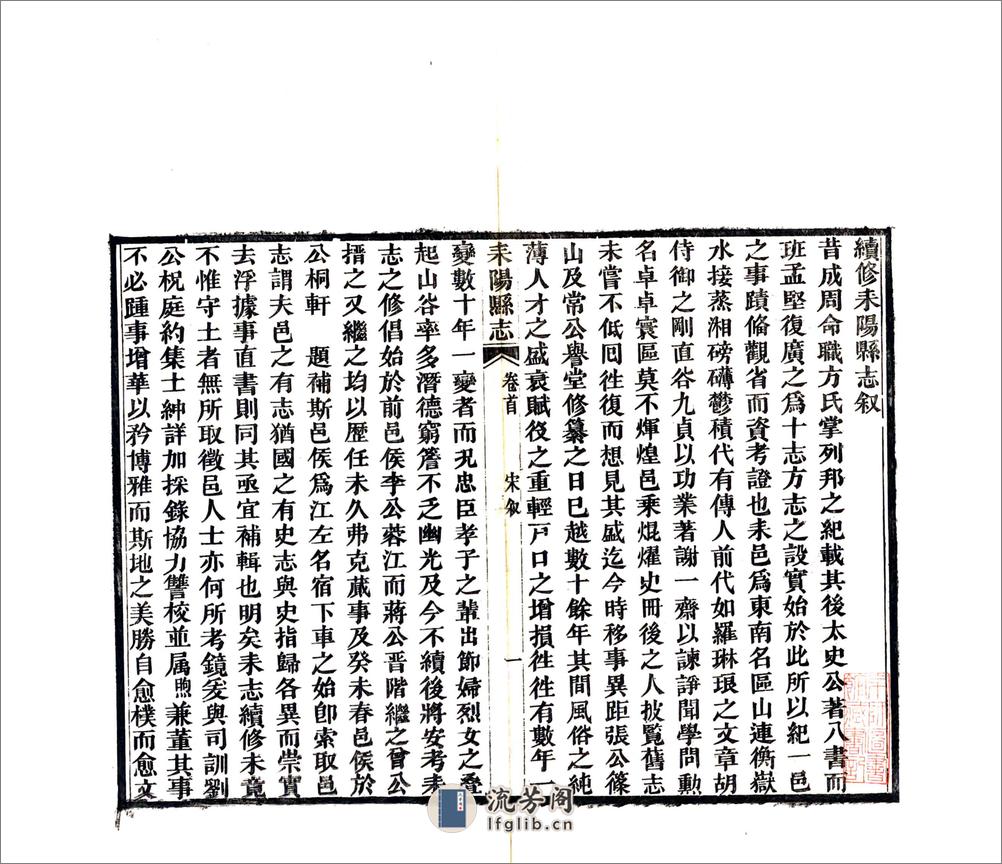 續修耒陽縣志叙
昔成周命職方氏掌列邦之紀載其後太史公著八書而
班孟堅復廣之爲十志方志之設實始於此所以紀一邑
之事蹟俻觀省而資考證也耒邑爲東南名區山連衡嶽
水接蒸湘磅礴鬱積代有傳人前代如羅琳琅之文章胡
侍御之剛直谷九貞以功業著謝一齋以諫諍聞學問勳
名卓卓寰區莫不煇煌邑乘焜燿史冊後之人披覧舊志
未嘗不低囘徃復而想見其盛迄今時移事異距張公篠
山及常公譽堂修纂之日巳越數十餘年其間風俗之純
薄人才之盛衰賦役之重輕戸口之增損徃徃有數年一
耒陽縣志
卷首
宋叙
一
變數十年一變者而况忠臣孝子之輩出節婦烈女之叠
起山谷率多潛德窮簷不乏幽光及今不續後將安考耒
志之修倡始於前邑侯李公蓉江而蔣公晋階繼之曾公
搢之又繼之均以歴任未久弗克蕆事及癸未春邑侯於
公桐軒 題補斯邑侯爲江左名宿下車之始卽索取邑
志謂夫邑之有志猶國之有史志與史指歸各異而崇實
去浮據事直書則同其亟宜補輯也明矣耒志續修未竟
不惟守土者無所取徵邑人士亦何所考鏡爰與司訓劉
公柷庭約集士紳詳加採錄協力讐校並属煦兼董其事
不必踵事增華以矜博雅而斯地之美勝自愈樸而愈文
流芳阁
lfglib.cn